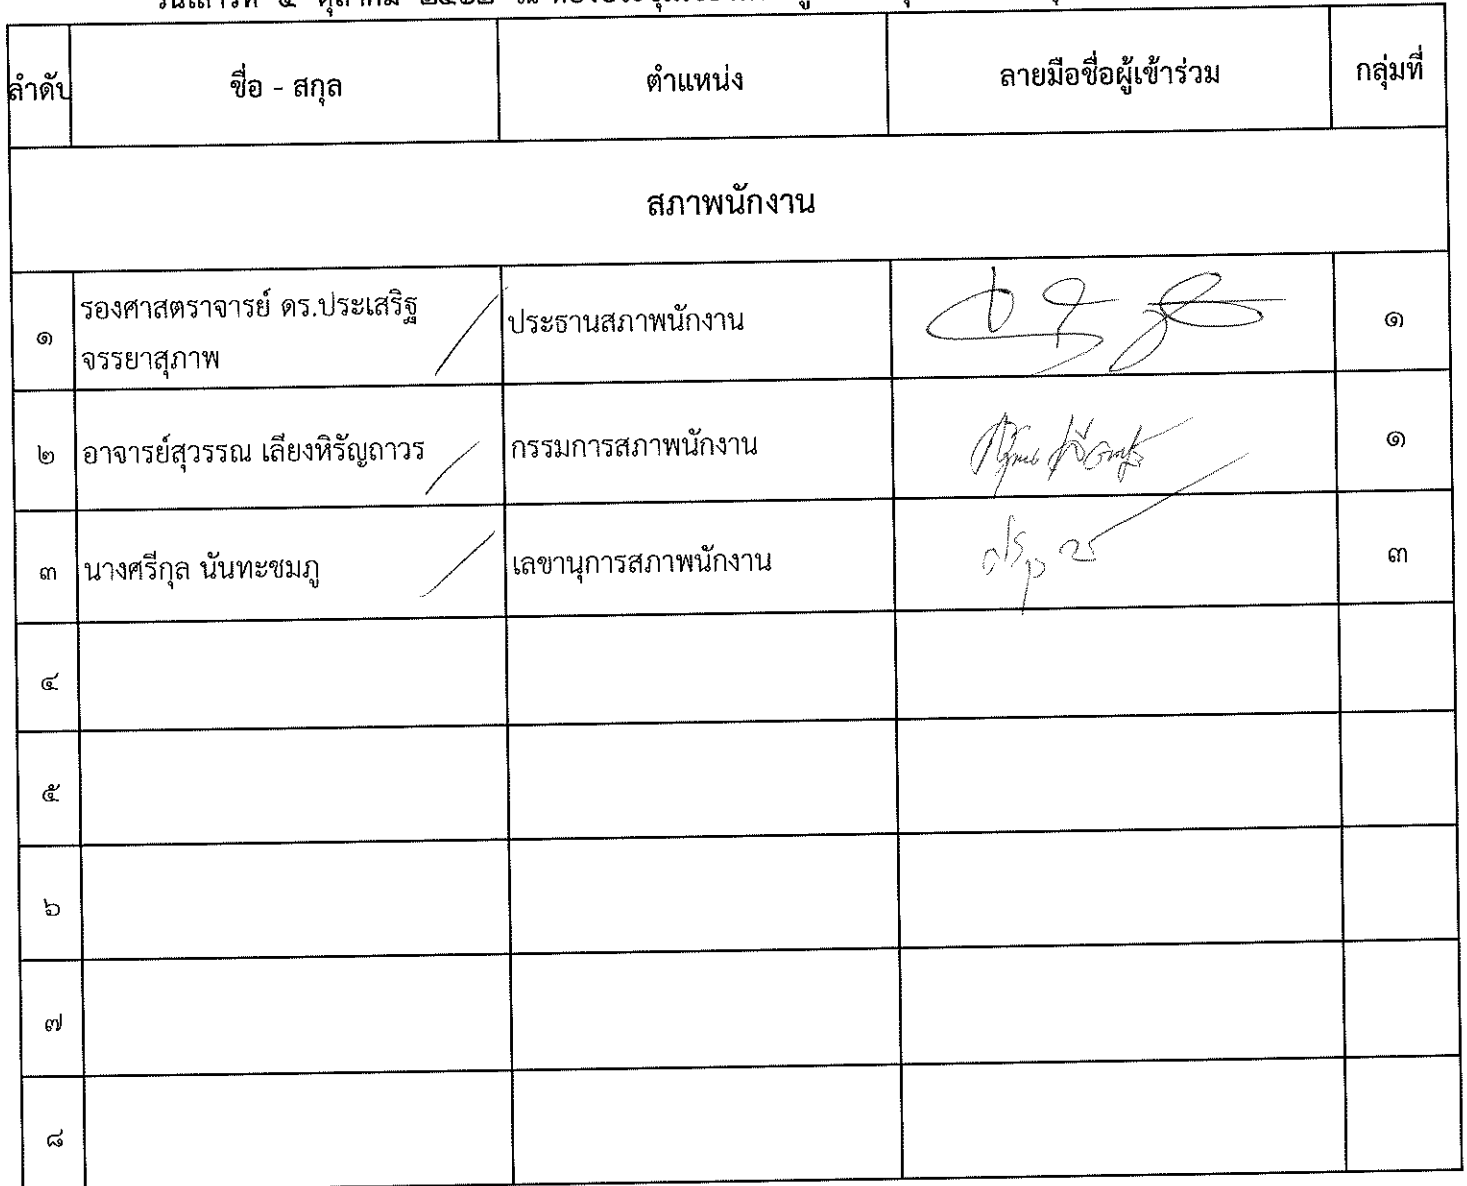 ลำดับ ชื่อ - สกุล ตำแหน่ง ลายมือชื่อผู้เข้าร่วม กลุ่มที่
สภาพนักงาน
๑ รองศาสตราจารย์ ดร.ประเสริฐ ประธานสภาพนักงาน ๑
จรรยาสุภาพ
๒ อาจารย์สุวรรณ เลียงหิรัญถาวร กรรมการสภาพนักงาน ๑
๓ นางศรีกุล นันทะชมภู เลขานุการสภาพนักงาน ๓
๔
๕
๖
๗
๘